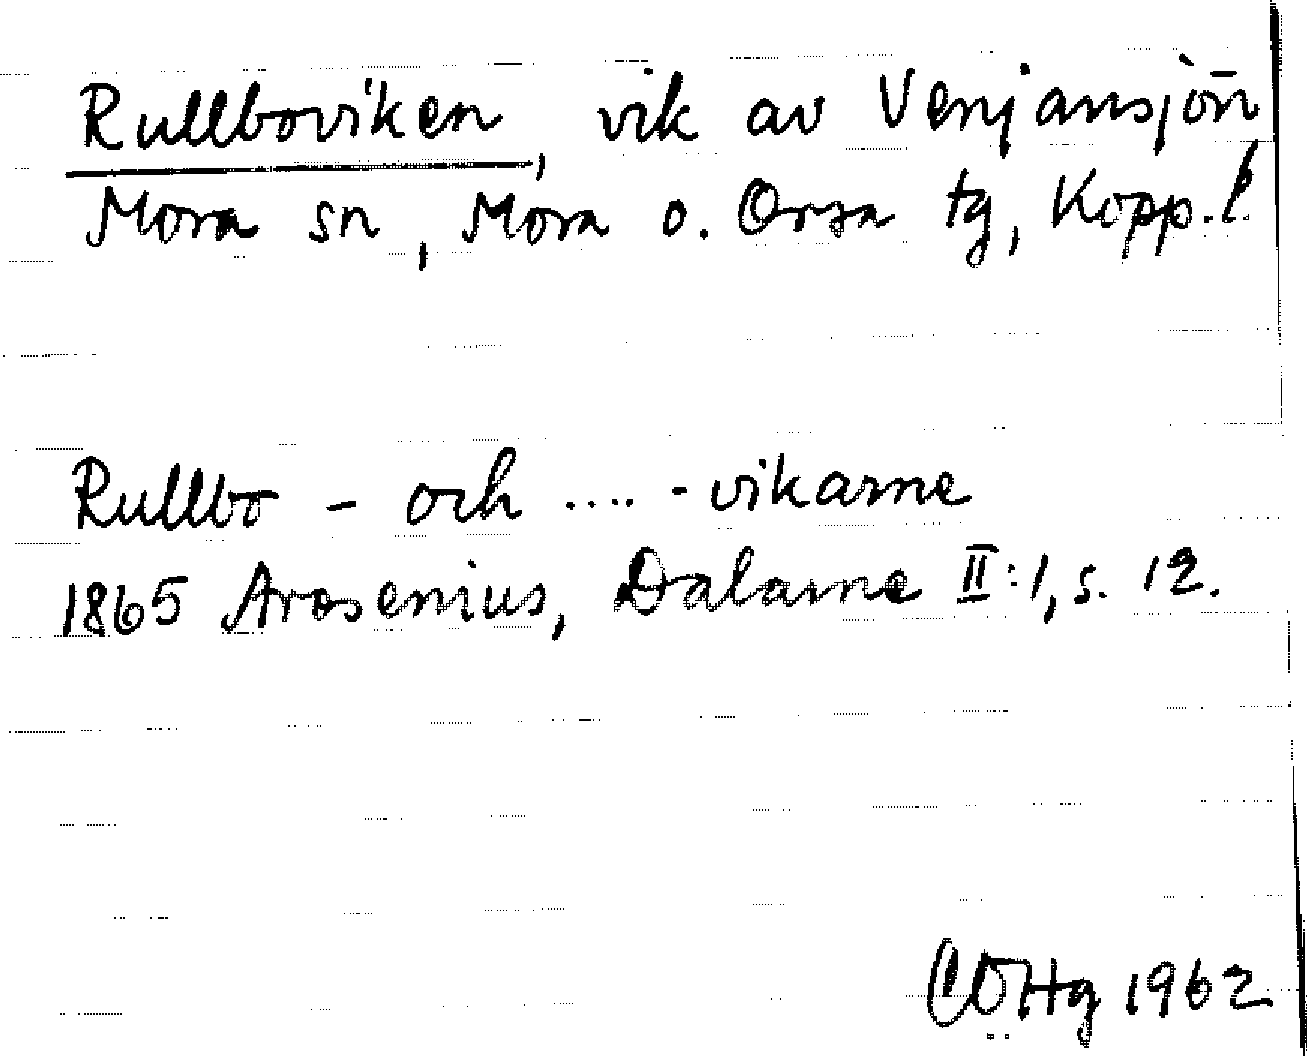 Rullboviken, vik av Venjansjön
Mora sn, Mora o. Orsa tg, Kopp. l.
Rullbo - och .... - vikarne
1865 Arosenius, Dalarne II:1, s. 12.
1962